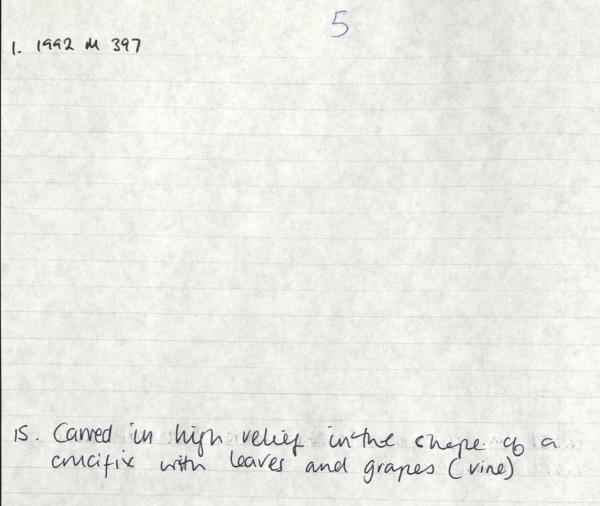 5
1. 1992 M 397
15. Carved in high relief in the shape of a
crucifix with leaves and grapes (vine)